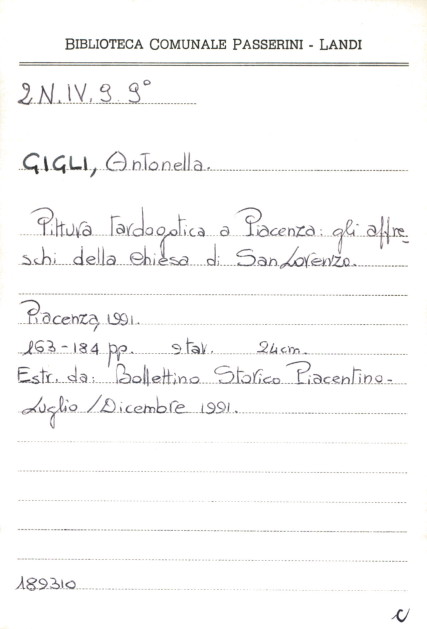 BIBLIOTECA COMUNALE PASSERINI - LANDI
2.N.IV.9.9°
GIGLI, Antonella.
Pittura tardogotica a Piacenza: gli affre-
schi della Chiesa di San Lorenzo.
Piacenza, 1991.
163-184 pp. 9 tav. 24cm.
Estr. da: Bollettino Storico Piacentino-
Luglio/Dicembre 1991.
189310
C